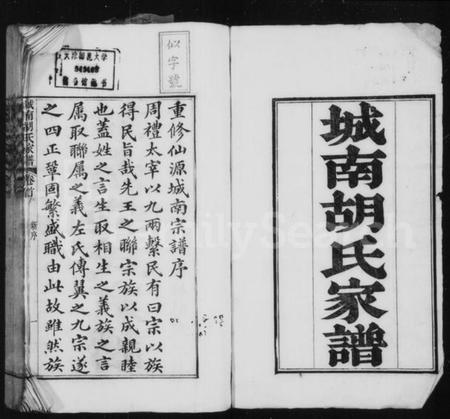 城南胡氏家譜
似字號
重修仙源城南宗譜序
周禮太宰以九兩繫民有曰宗以族
得民旨哉先王之聯宗族以成親睦
也蓋姓之言生取相生之義族之言
屬取聯屬之義左氏傳翼之九宗遂
之四正鞏固繁盛職由此故雖然族
城南胡氏家譜 卷首 新序
FamilySearch